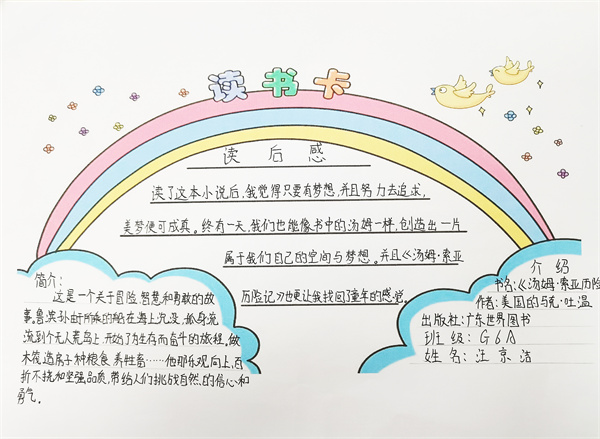 读书卡
读后感
读了这本小说后,我觉得只要有梦想,并且努力去追求,
美梦便可成真。终有一天,我们也能像书中的汤姆一样,创造出一片
属于我们自己的空间与梦想。并且《汤姆·索亚
历险记》也更让我找回了童年的感觉。
简介:
这是一个关于冒险、智慧和勇敢的故
事。鲁滨孙由于所乘的船在海上沉没,孤身流
流到个无人荒岛上,开始了为生存而奋斗的旅程,做
木筏、造房子、种粮食、养牲畜……他那乐观向上、百
折不挠和坚强品质,带给人们挑战自然的信心和
勇气。
介绍
书名:《汤姆·索亚历险
作者:美国的马克·吐温
出版社:广东世界图书
班级:G6A
姓名:汪京洁